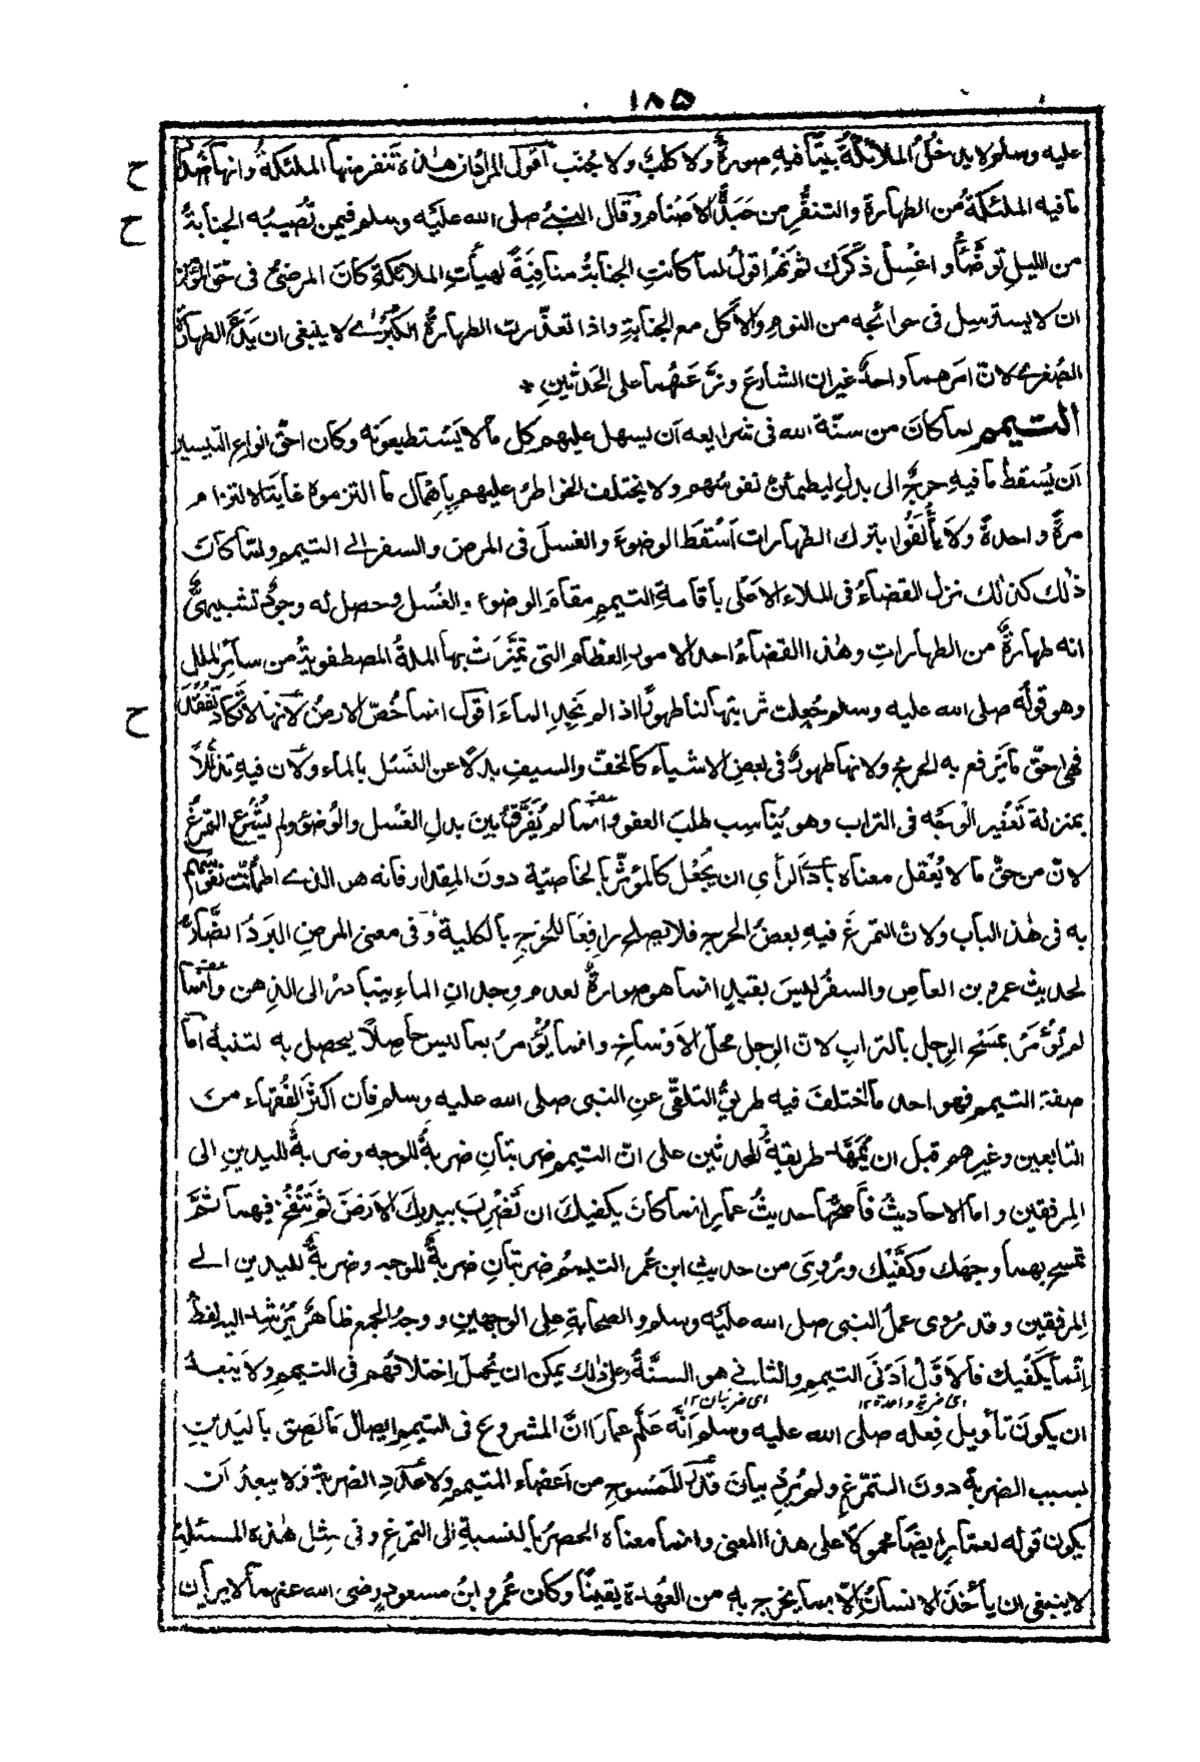 ١٨٥
عليه وسلم لا يدخُلُ الملائكةُ بيتًا فيه صورةٌ ولا كلبٌ ولا جُنب اقول المراد ان هذه تتنفر منها الملئكة وانها ضد
ح
ما فيه الملئكةُ من الطهارة والتنفُّرِ من عَبَدَةِ الاصنام وقال النبي صلى الله عليه وسلم فيمن تُصيبُه الجنابةُ
ح
من الليل توضَّأْ واغْسِل ذكَرَك ثم نَم اقولُ لما كانتِ الجنابةُ منافيةً لهيأتِ الملائكةِ كان المرضيُّ في حق المؤمن
ان لا يسترسِل في حوائجه من النوم والأكل مع الجنابةِ واذا تعذّرت الطهارةُ الكُبْرٰى لا ينبغي ان يَدَعَ الطهارة
الصُغرى لانّ امرَهما واحدٌ غير ان الشارعَ وزَّعَهُما على الحَدثَينِ *
التيمم لما كانَ من سنّة الله في شرايعه أن يسهل عليهم كل ما لا يَستطيعونَه وكان احقّ انواع التيسير
أن يُسقطَ ما فيه حرجٌ الى بدلٍ ليطمئنّ نفوسُهم ولا يختلف الخواطرُ عليهم بإهمال ما التزموه غايةَ الالتزام
مرةً واحدةً ولا يألَفُوا بترك الطهارات اَسْقَطَ الوضوءَ والغسلَ في المرض والسفر الى التيمم ولما كان
ذٰلك كذٰلك نزل القضاءُ في الملاء الاعلى بأقامةِ التيمم مقامَ الوضوء والغُسل وحصل له وجودٌ تشبيهيٌّ
انه طهارةٌ من الطهاراتِ وهذا القضاءُ احد الامورِ العظام التي تميَّزَت بها الملةُ المصطفويةُ من سائر الملل
وهو قوله صلى الله عليه وسلم جُعِلت تربتها لنا طهورًا اذا لم نَجِدِ الماءَ اقول انما خُصّ الارضُ لانها لا تكاد تُفقَد
ح
فهي احقّ ما يُرفع به الحرج ولانها طهورٌ في بعضِ الاشياء كالخفّ والسيفِ بدلًا عن الغَسْل بالماء ولان فيه تذللًا
بمنزلة تَعْفير الوَجه في التراب وهو يُناسِب طلبَ العفو وانما لم يُفَرَّقْ بينَ بدلِ الغُسل والوُضوء ولم يُشْرَع التمرُّغ
لانّ من حقّ ما لا يُعْقل معناه بادىَ الرأى ان يُجْعَل كالمؤثّر بالخاصيّة دونَ المِقدار فانه هو الذي اطمأنّت نفوسهم
به في هٰذا الباب ولان التمرّغَ فيهِ بعضُ الحرجِ فلا يصلح رافِعًا للحَرجِ بالكلية وفي معنى المرضِ البَردُ الضارُّ
لحديثِ عمرو بن العاصِ والسفرُ ليسَ بقيدٍ انما هو صورةٌ لعدم وِجدانِ الماءِ يتبادرُ الى الذهن وانما
لم يُؤْمَر بمَسْحِ الرجل بالترابِ لانّ الرجل محلّ الأوساخِ وانما يُؤمرُ بما ليس حاصلًا يحصل به التنبه اما
صفة التيمم فهو احد ما اختلفَ فيه طريقُ التلقّي عنِ النبي صلى الله عليه وسلم فإن اكثرَ الفُقهاء من
التابعين وغيرهم قبل ان تُمهَّدَ طريقةُ المحدثين على انّ التيمم ضربتانِ ضربةٌ للوجه وضربةٌ لليدينِ الى
المِرفقين واما الاحاديثُ فأصحُّها حديثُ عمارٍ انما كانَ يكفيكَ ان تَضْرِبَ بيديكَ الارضَ ثم تَنْفُخَ فيهما ثُمَّ
تمسح بهما وجهك وكفَّيْك ورُوِيَ من حديثِ ابن عُمر التيممُ ضربتانِ ضربةٌ للوجه وضربةٌ لليدين الى
المِرفقين وقد رُوي عملُ النبي صلى الله عليه وسلم والصحابةِ على الوجهينِ ووجهُ الجمعِ ظاهرٌ يُرْشِدُ اليه لفظُ
انّما يَكْفيك فالأوّلُ أدنَى التيمم والثاني هو السنَّةُ وعلى ذٰلك يمكن ان يُحمل اختلافُهم في التيمم ولا يبعدُ
اى ضربة واحدة ١٢ اى ضربتان ١٢
ان يكون تأويل فِعله صلى الله عليه وسلم أنّه عَلَّم عمارًا انَّ المشروعَ في التيمم ايصال ما لَصِق باليَدينِ
بسبب الضربة دونَ التمرّغِ ولم يُرِدْ بيانَ قَدرِ المَمْسوحِ من أعضاء التيمم ولا عددِ الضربة ولا يبعدُ ان
يكون قوله لعمّارٍ ايضًا محمولًا على هذا المعنى وانما معناه الحصرُ بالنسبةِ الى التمرّغِ وفي مثل هٰذه المسئلة
لا ينبغي ان يأخُذَ الانسانُ إلّا بما يخرج به من العُهدة يقينًا وكان عُمر وابنُ مسعودٍ رضي الله عنهما لا يريان